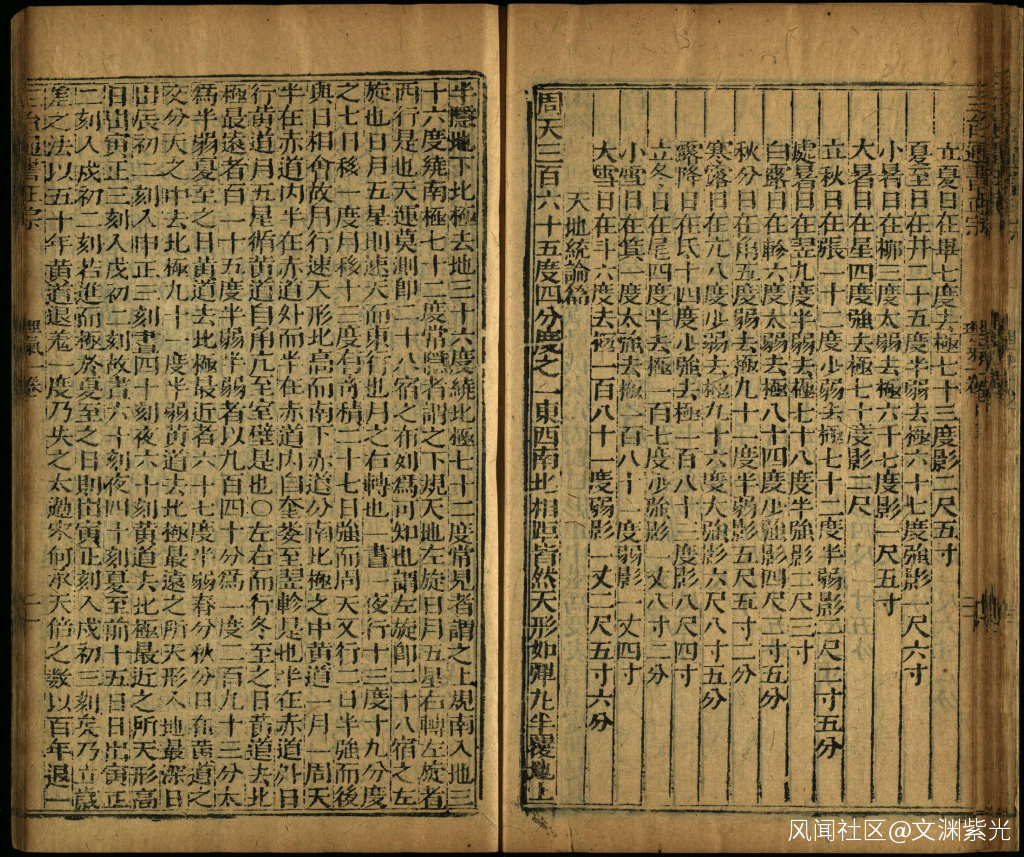 立夏日在畢七度去極七十三度影二尺五寸
夏至日在井二十五度半弱去極六十七度強影一尺六寸
小暑日在柳三度太弱去極六十七度影一尺五寸
大暑日在星四度強去極七十度影二尺
立秋日在張一十二度少弱去極七十二度半弱影二尺二寸五分
處暑日在翌九度半弱去極七十八度半強影二尺三寸
白露日在軫六度太弱去極八十四度少強影四尺三寸五分
秋分日在角五度弱去極九十一度半弱影五尺五寸二分
寒露日在亢八度少弱去極九十六度大強影六尺八寸五分
霜降日在氐十四度少強去極一百八十三度影八尺四寸
立冬日在尾四度半去極一百七度少強影一丈八寸二分
小雪日在箕一度太強去極一百八十一度弱影一丈四寸
大雪日在斗六度去極一百八十一度弱影一丈二尺五寸六分
天地統論篇
周天三百六十五度四分度之一東西南北相距皆然天形如彈丸半覆地上
半隱地下北極去地三十六度繞北極七十二度常見者謂之上規南入地三
十六度繞南極七十二度常隱者謂之下規天地左旋日月五星右轉左旋者
西行是也天運莫測即二十八宿之布如爲可知也謂左旋即二十八宿之左
旋也日月五星則速天而東行也月之右轉也一晝一夜行十三度十九分度
之七日移一度月移十三度有奇積二十七日強而周天又行二日半強而後
與日相會故月行速天形北高而南下赤道分南北極之中黃道一月一周天
半在赤道內半在赤道外而半在赤道內自奎婁至翌軫是也半在赤道外日
行黃道月五星循黃道自角亢至室壁是也〇左右而行冬至之日黃道去北
極最遠者百一十五度半弱半弱者以九百四十分爲一度二百九十三分太
爲半弱夏至之日黃道去北極最近者六十七度半弱春分秋分日在黃道之
交分天之中去北極九十一度半弱黃道去北極最遠之所天形入地最深日
出辰初二刻入申正三刻晝四十刻夜六十刻黃道去北極最近之所天形高
日出寅正三刻入戌初二刻故晝六十刻夜四十刻夏至前十五日日出寅正
二刻入戌初二刻若進而極於夏至之日則出寅正刻入戌初三刻矣乃立歲
差之法以五十年黃道退差一度乃失之太過宋何承天倍之數以百年退一
三台通書正宗
理氣一卷
二